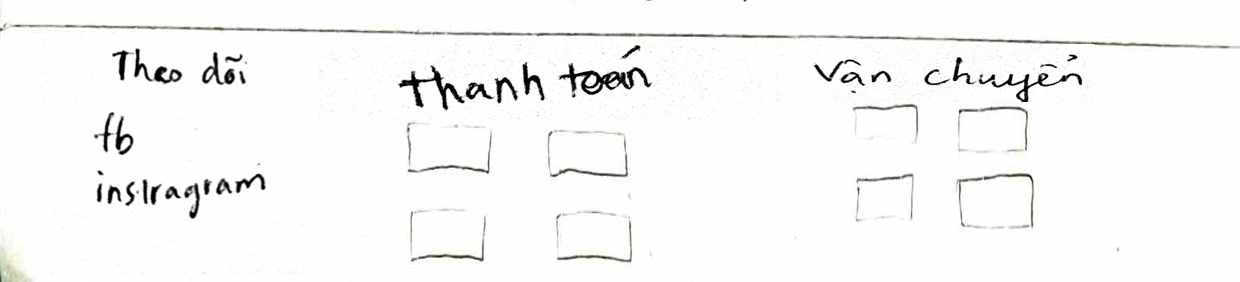 Theo dõi
fb
instragram
thanh toán
vận chuyển